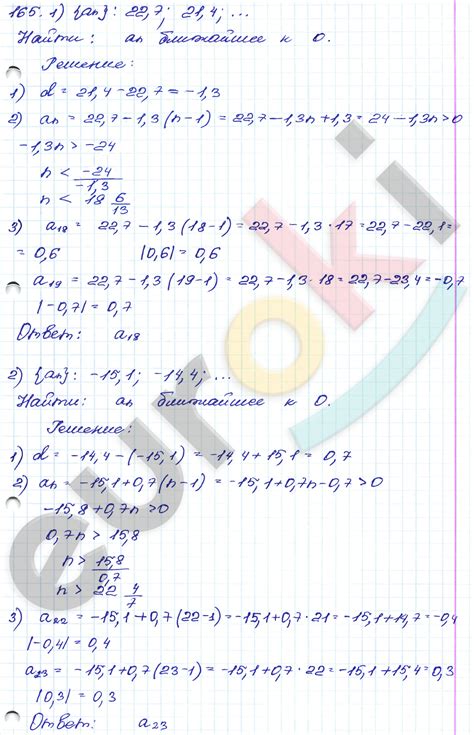 165. 1) {an}: 22,7; 21,4; ...
Найти: an ближайшее к 0.
Решение:
1) d = 21,4 - 22,7 = -1,3
2) an = 22,7 - 1,3(n-1) = 22,7 - 1,3n + 1,3 = 24 - 1,3n > 0
-1,3n > -24
n < -24/-1,3
n < 18 6/13
3) a18 = 22,7 - 1,3(18-1) = 22,7 - 1,3 · 17 = 22,7 - 22,1 =
= 0,6 |0,6| = 0,6
a19 = 22,7 - 1,3(19-1) = 22,7 - 1,3 · 18 = 22,7 - 23,4 = -0,7
|-0,7| = 0,7
Ответ: a18
2) {an}: -15,1; -14,4; ...
Найти: an ближайшее к 0.
Решение:
1) d = -14,4 - (-15,1) = -14,4 + 15,1 = 0,7
2) an = -15,1 + 0,7(n-1) = -15,1 + 0,7n - 0,7 > 0
-15,8 + 0,7n > 0
0,7n > 15,8
n > 15,8/0,7
n > 22 4/7
3) a22 = -15,1 + 0,7(22-1) = -15,1 + 0,7 · 21 = -15,1 + 14,7 = -0,4
|-0,4| = 0,4
a23 = -15,1 + 0,7(23-1) = -15,1 + 0,7 · 22 = -15,1 + 15,4 = 0,3
|0,3| = 0,3
Ответ: a23
euroki